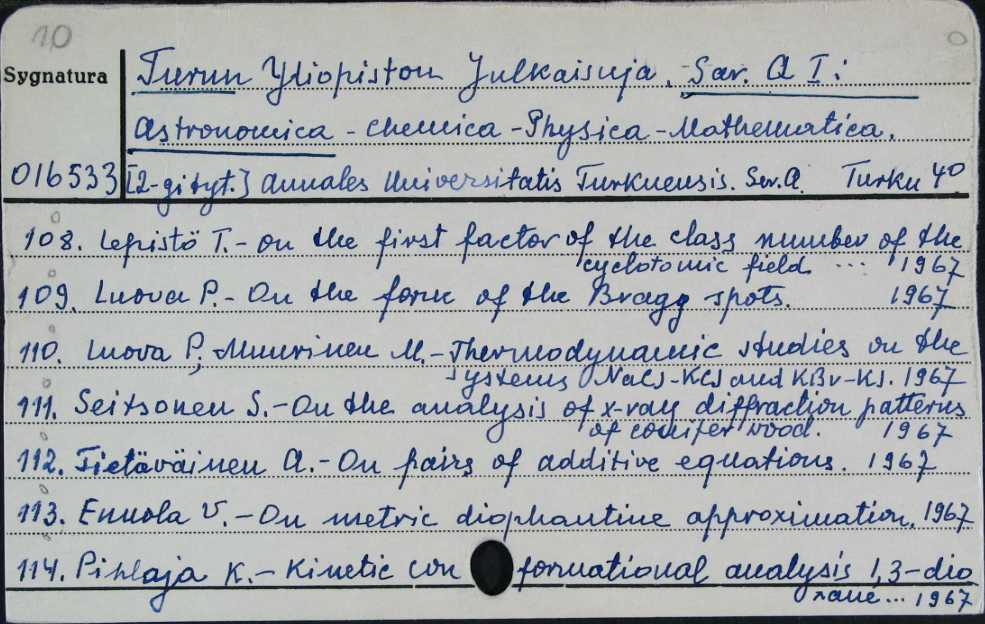 10
Sygnatura
Turun Yliopiston Julkaisuja. Sar. A I:
Astronomica - Chemica - Physica - Mathematica.
016533 [2-gi tyt.] Annales Universitatis Turkuensis. Ser. A. Turku 40
108. Lepistö T. - On the first factor of the class number of the
cyclotomic field ... 1967
109. Luova P. - On the form of the Bragg spots. 1967
110. Luova P., Muurinen M. - Thermodynamic studies on the
systems NaCl-KCl and KBr-KI. 1967
111. Seitsonen S. - On the analysis of x-ray diffraction patterns
of conifer wood. 1967
112. Tietäväinen A. - On pairs of additive equations. 1967
113. Ennola V. - On metric diophantine approximation. 1967
114. Pihlaja K. - Kinetic con formational analysis 1,3-dio
xane ... 1967